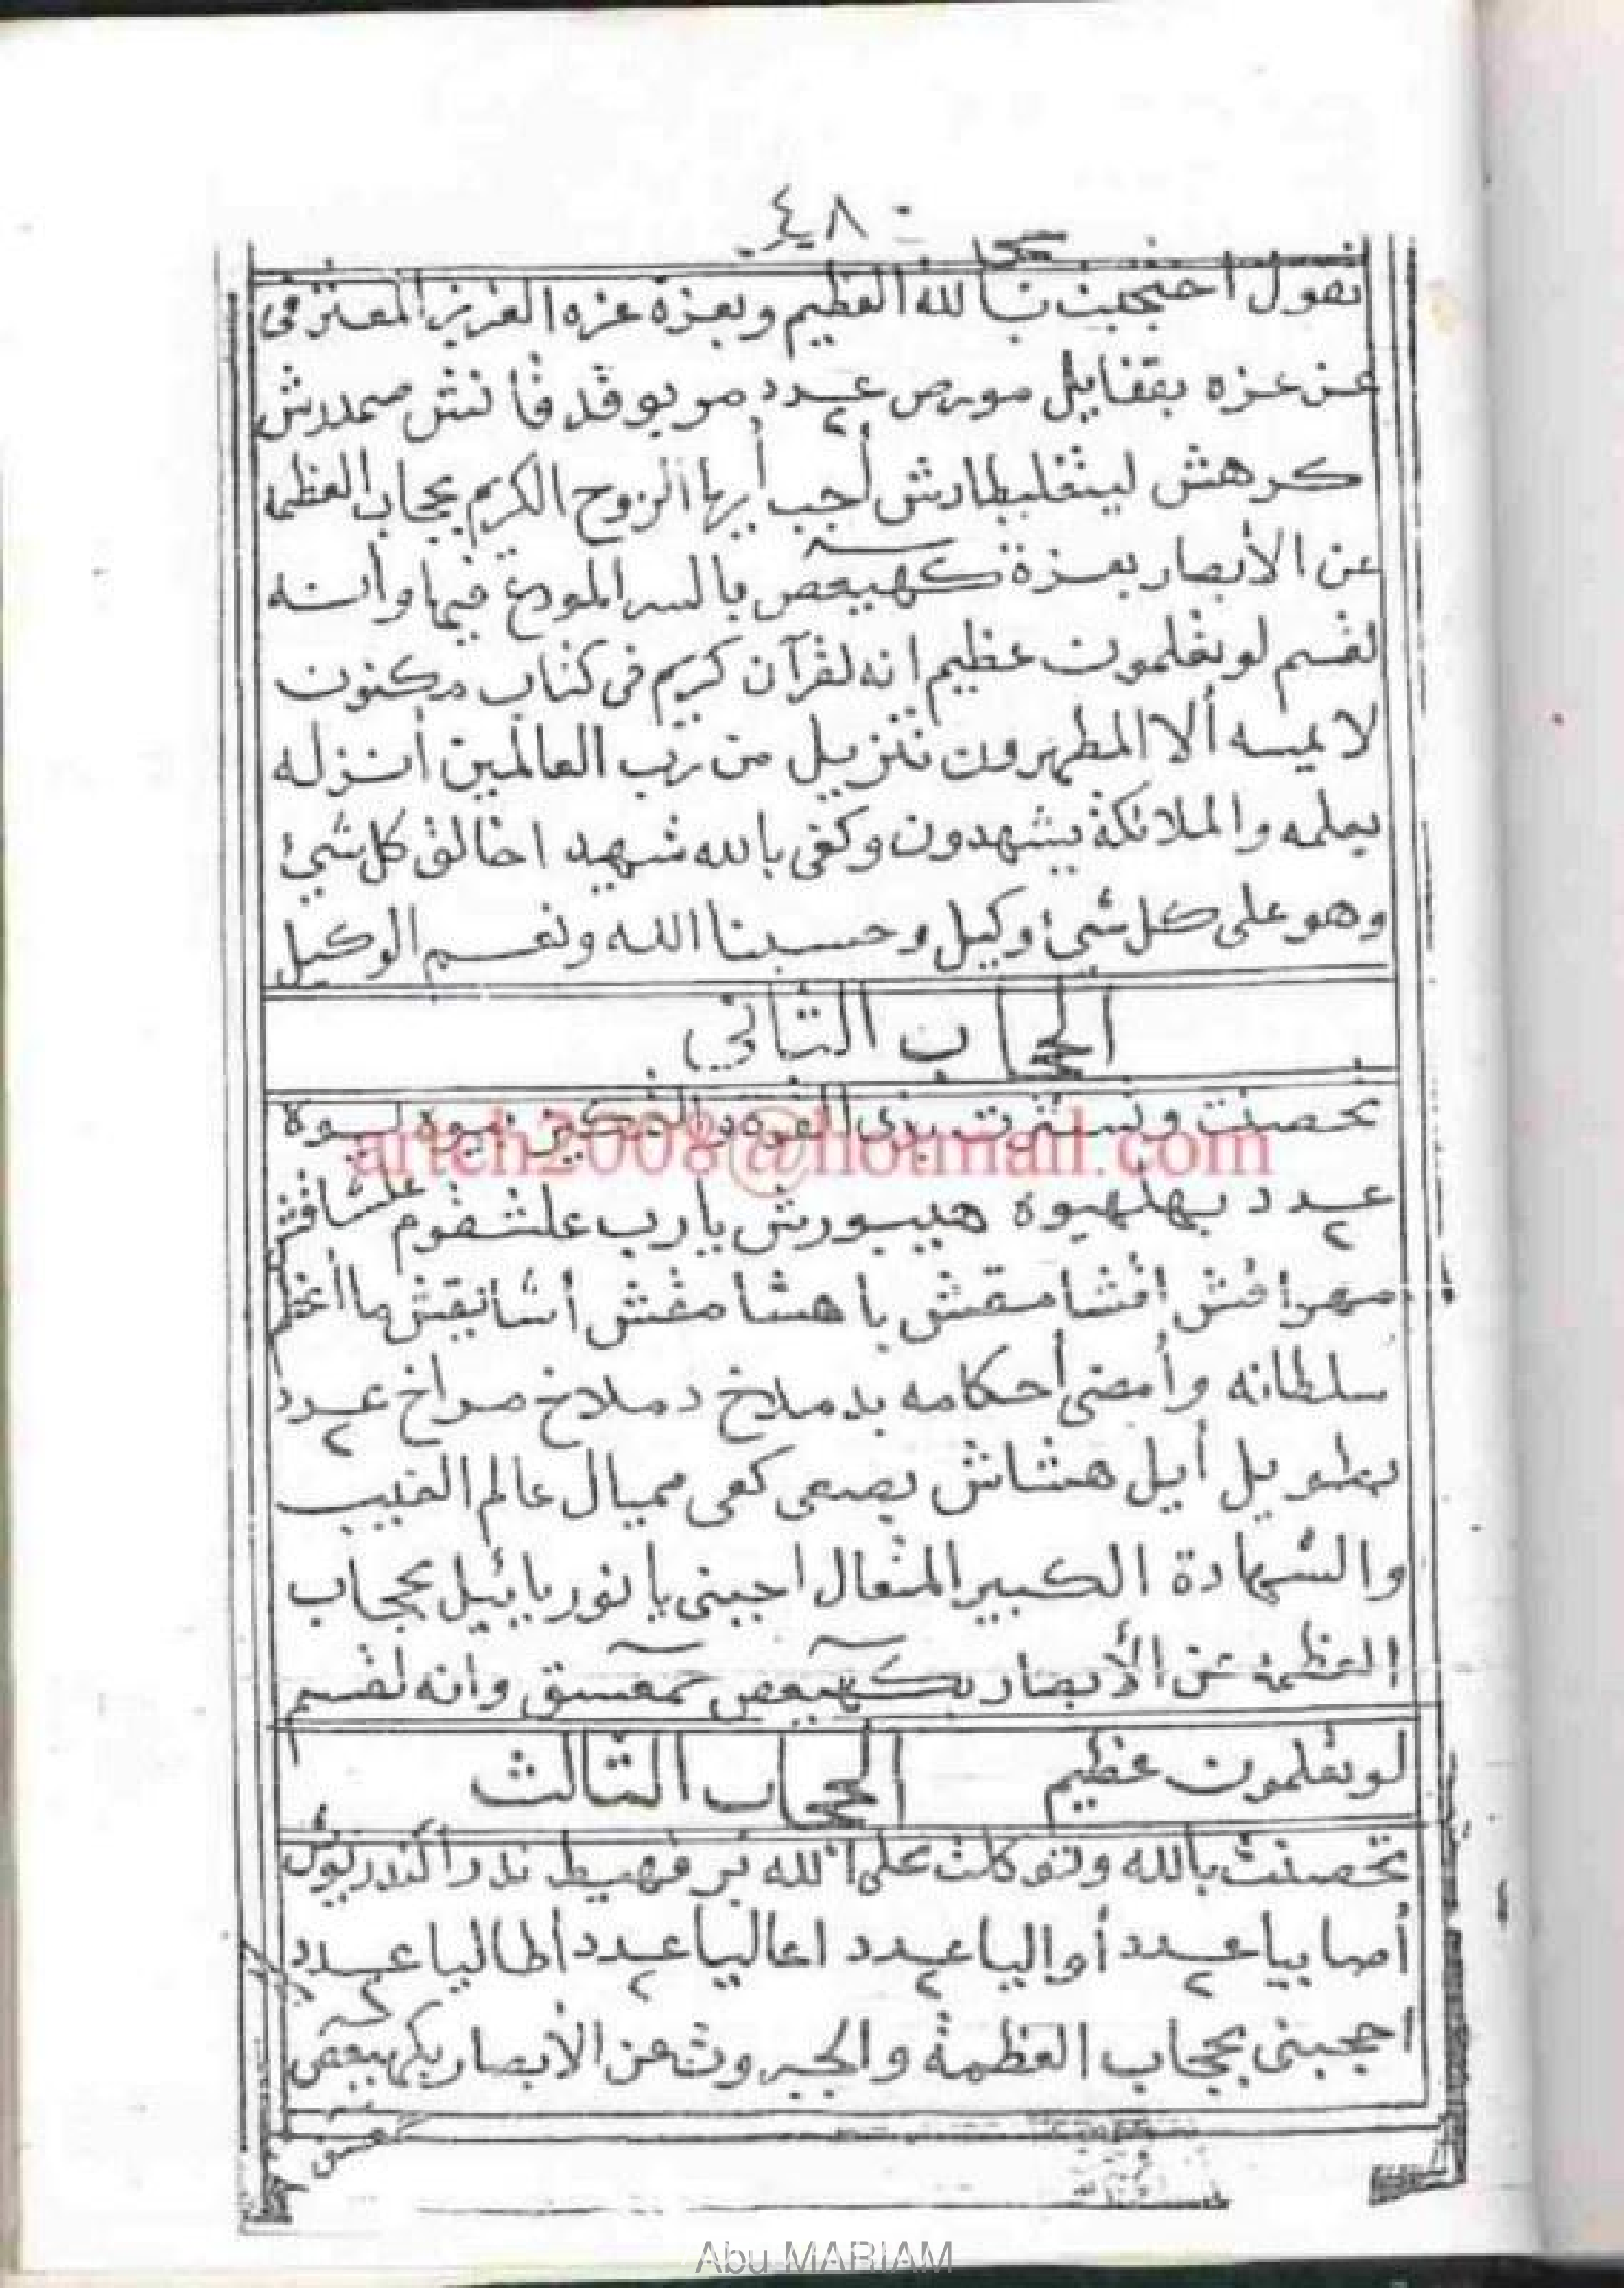 ٤٨
تقول احتجبت بالله العظيم وبعزة عزه العزيز المعتز في
عن عزه بقفايل مورص عدد٢ مو بو قد فا نش صمدرش
كرهش ليثقلبطادش أجب أيها الروح الكريم بحجاب العظمه
عن الأبصار بعزة كهيعص بالسر المودع فيها وانه
لقسم لو تعلمون عظيم انه لقرآن كريم في كتاب مكنون
لا يمسه ألا المطهرون تنزيل من رب العالمين أنزله
بعلمه والملائكة يشهدون وكفى بالله شهيد اخالق كل شيئ
وهو على كل شيئ وكيل وحسبنا الله ونعم الوكيل
الحجاب الثاني
تحصنت وتسترت بذي العزه
عدد٢ بهلهيوه هيبورش يارب علشقوم علشاقش
مهراقش اقشا مقش يا هشا مغش أشانقش ما أعظم
سلطانه وأمضى أحكامه بدملاخ دملاخ مراخ عدد٢
بطويل أيل هشاش بصعى كعى ممیال عالم الغيب
والشهادة الكبير المتعال اجبني يا نور يائيل بحجاب
العظمة عن الأبصار بكهيعص حمعسق وانه لقسم
لو تعلمون عظيم الحجاب الثالث
تحصنت بالله وتوكلت على الله بر قهيط ندرا كندريوش
أصابيا عدد٢ أواليا عدد٢ اعاليا عدد٢ أطاليا عدد٢
احجبني بحجاب العظمة والجبروت عن الأبصار بكهيعص
حمعسق
arteh2008@hotmail.com
Abu MARIAM